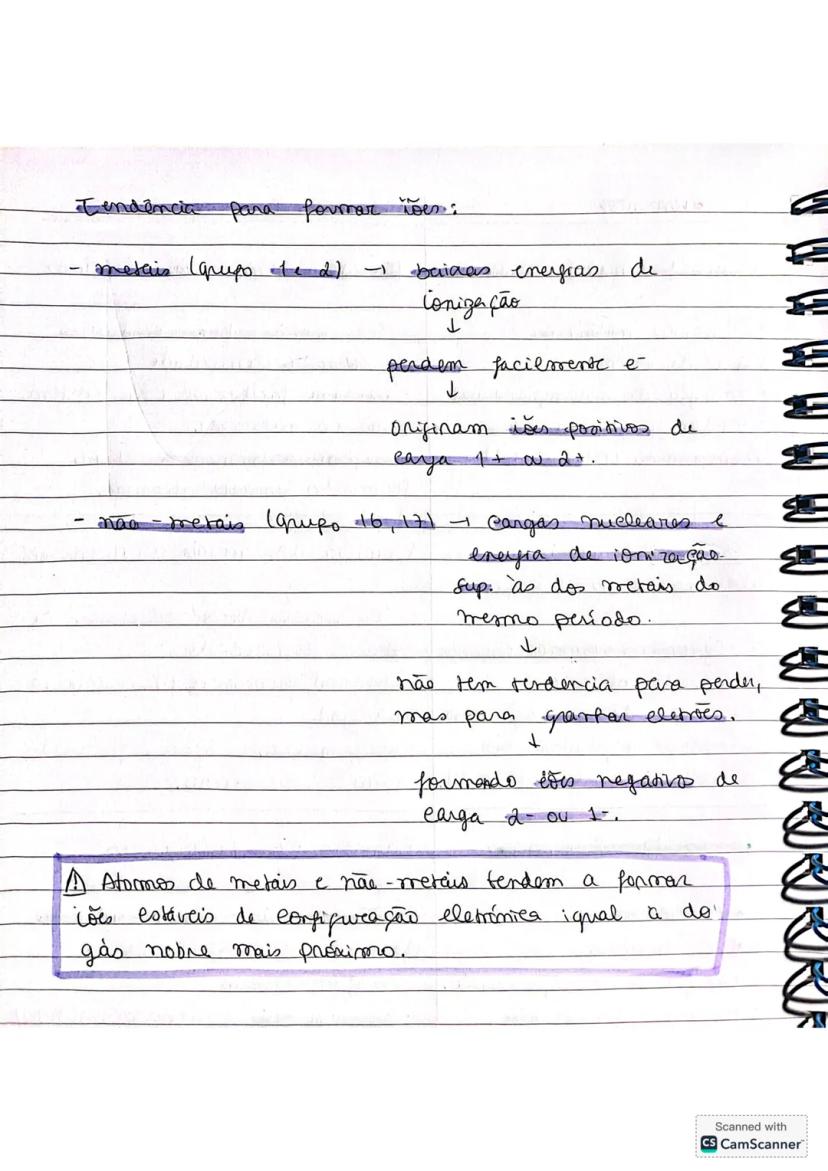 Tendência para formar iões:
- metais (grupo 1 e 2) → baixas energias de
ionização
↓
perdem facilmente e-
↓
originam iões positivos de
carga 1+ ou 2+.
- não-metais (grupo 16, 17) → cargas nucleares e
energia de ionização
sup. às dos metais do
mesmo período.
↓
não tem tendencia para perder,
mas para ganhar eletrões.
↓
formando iões negativos de
carga 2- ou 1-.
⚠ Átomos de metais e não-metais tendem a formar
iões estáveis de configuração eletrónica igual a do
gás nobre mais próximo.
Scanned with
CS CamScanner